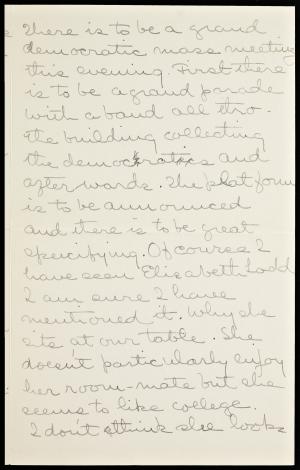 There is to be a grand
democratic mass meeting
this evening. First there
is to be a grand parade
with a band all thro-
the building collecting
the democratics and
afterwards. The platform
is to be announced
and there is to be great
speecifying. Of course I
have seen Elizabeth Todd
I am sure I have
mentioned it. Why she
sits at our table. She
doesn't particularly enjoy
her room-mate but she
seems to like college.
I don't think she looks